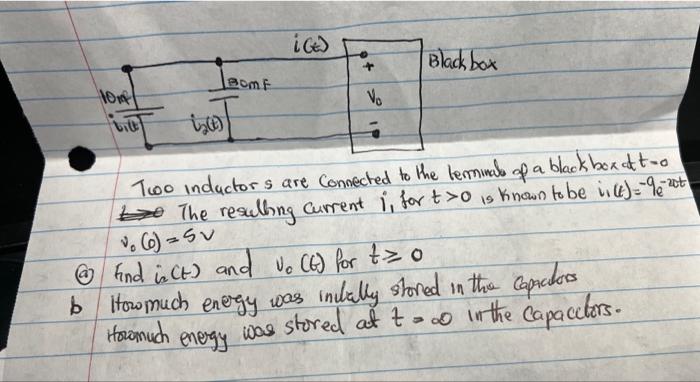 i(t)
Black box
+
30mF
10mF
Vo
i1(t)
i2(t)
-
Two inductors are connected to the terminals of a black box at t=0
The resulting current i, for t>0 is known to be i1(t)=-9e-20t
vo(0)=5V
a find i2(t) and vo(t) for t≥0
b How much energy was initially stored in the capacitors
Howmuch energy was stored at t=∞ in the capacitors.